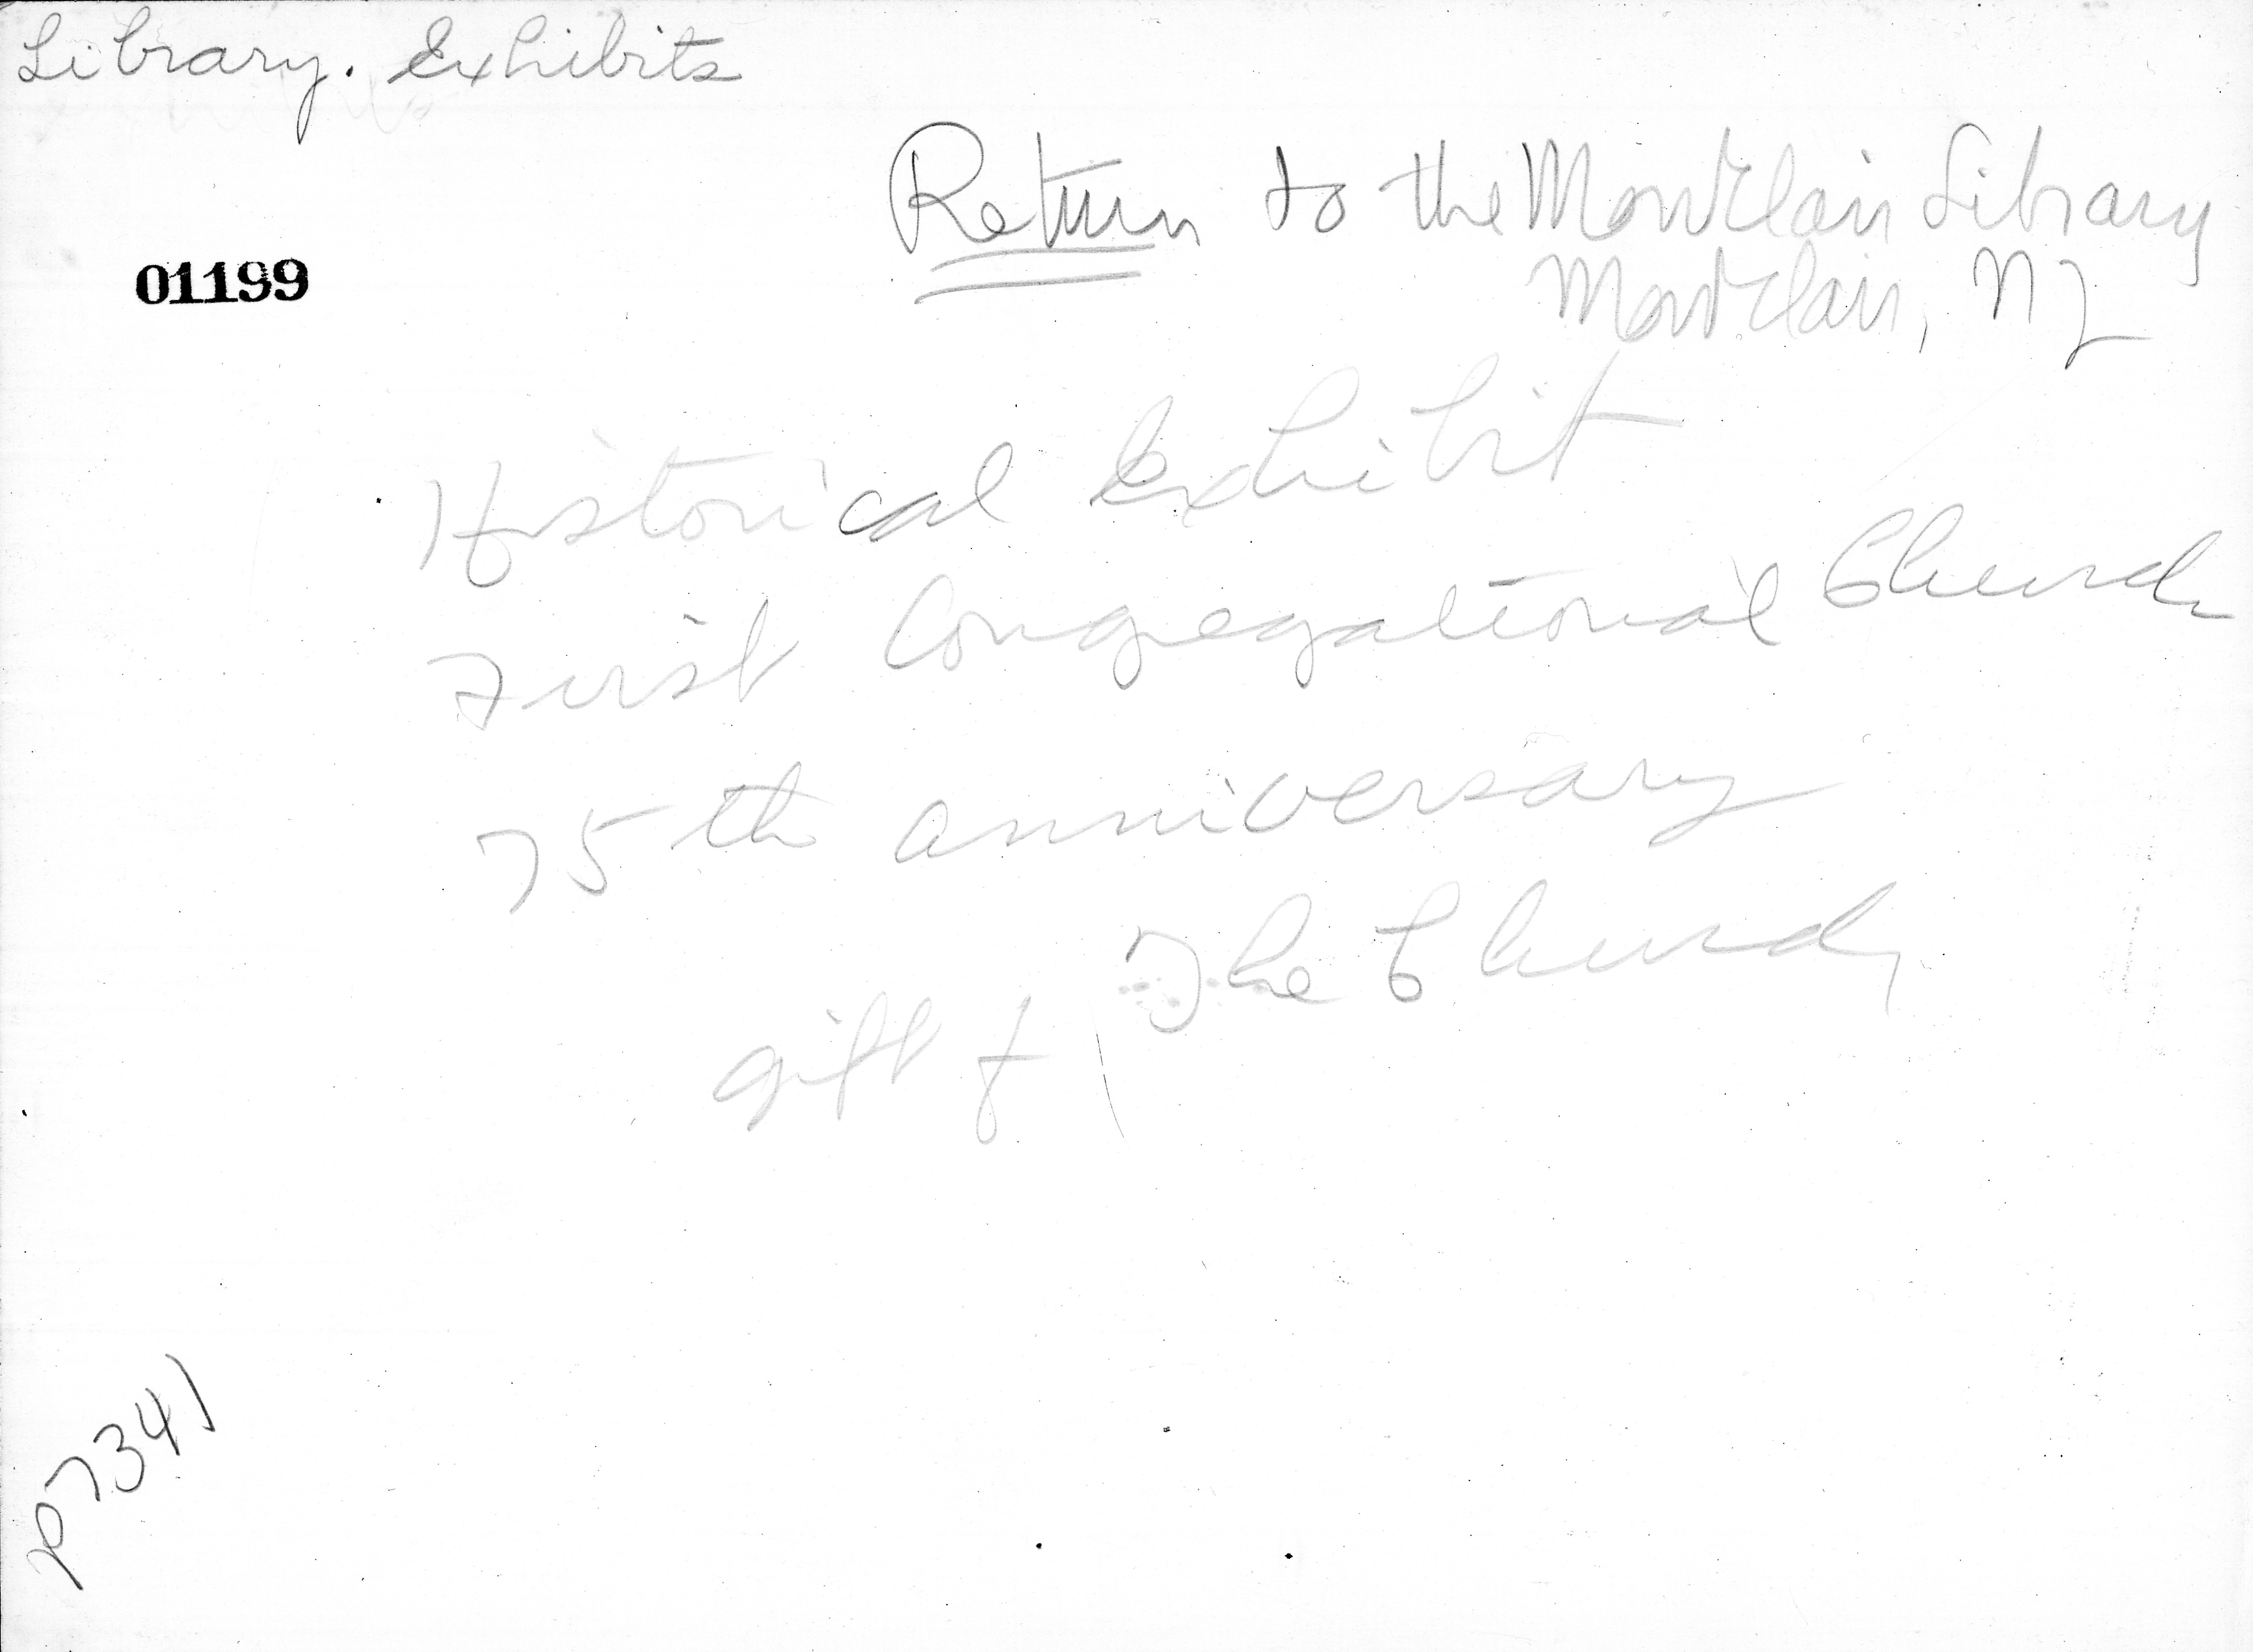 Library. Exhibits
Return to the Montclair Library
Montclair, NJ
01199
Historical Exhibit
First Congregational Church
75th anniversary
gift of The Church
P7341